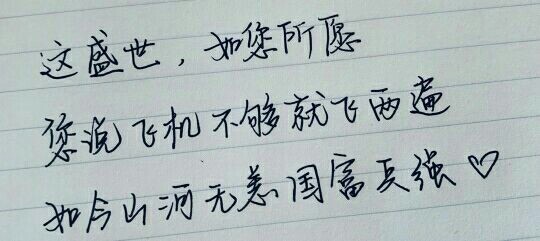 这盛世，如您所愿
您说飞机不够就飞两遍
如今山河无恙国富兵强♡